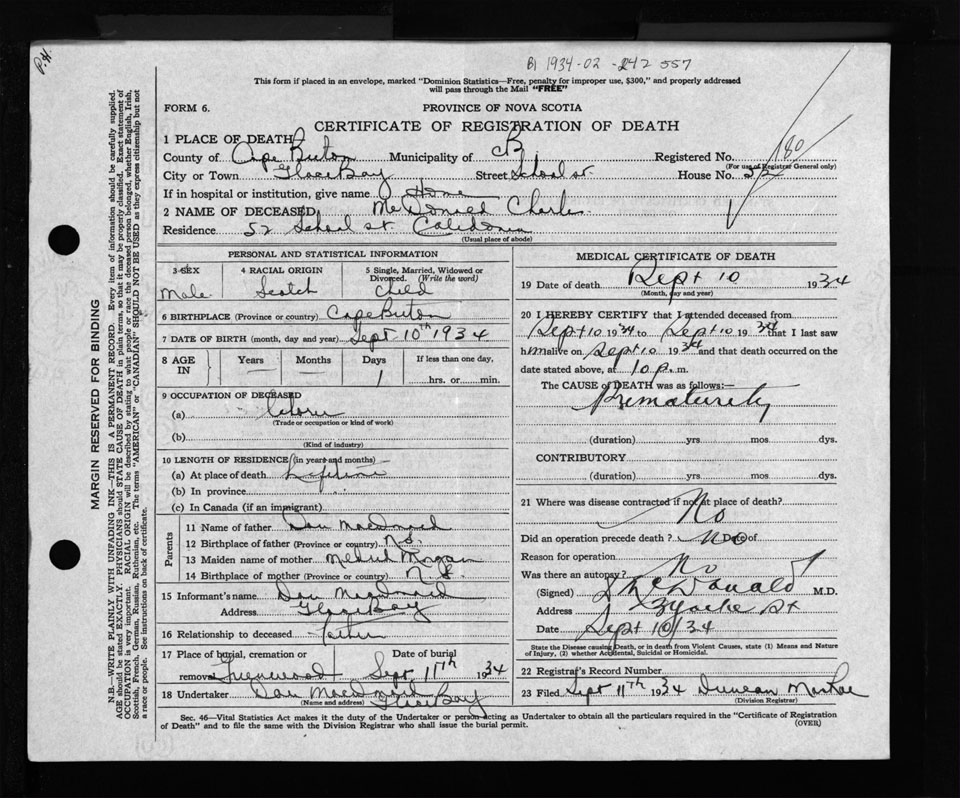 P.H.
B1 1934-02-242 557
This form if placed in an envelope, marked "Dominion Statistics—Free, penalty for improper use, $300," and properly addressed
will pass through the Mail "FREE"
FORM 6. PROVINCE OF NOVA SCOTIA
CERTIFICATE OF REGISTRATION OF DEATH
1 PLACE OF DEATH
County of Cape Breton Municipality of CB Registered No. 180
(For use of Registrar General only)
City or Town Glace Bay Street School st. House No. 52
If in hospital or institution, give name Home
2 NAME OF DECEASED McDonald Charles
Residence 52 School st. Caledonia
(Usual place of abode)
PERSONAL AND STATISTICAL INFORMATION
3 SEX 4 RACIAL ORIGIN 5 Single, Married, Widowed or Divorced. (Write the word)
Male Scotch Child
6 BIRTHPLACE (Province or country) Cape Breton
7 DATE OF BIRTH (month, day and year) Sept 10th 1934
8 AGE IN Years Months Days If less than one day,
1 hrs. or min.
9 OCCUPATION OF DECEASED
(a)
(Trade or occupation or kind of work)
(b)
(Kind of industry)
10 LENGTH OF RESIDENCE (in years and months)
(a) At place of death Lifetime
(b) In province
(c) In Canada (if an immigrant)
Parents
11 Name of father Dan MacDonald
12 Birthplace of father (Province or country) N.S.
13 Maiden name of mother Morgan
14 Birthplace of mother (Province or country) N.S.
15 Informant's name Dan MacDonald
Address Glace Bay
16 Relationship to deceased father
17 Place of burial, cremation or removal Date of burial
Greenwood Sept 11th 1934
18 Undertaker Dan MacDonald
(Name and address) Glace Bay
MEDICAL CERTIFICATE OF DEATH
19 Date of death Sept 10 1934
(Month, day and year)
20 I HEREBY CERTIFY that I attended deceased from
Sept 10 1934 to Sept 10 1934 that I last saw
him alive on Sept 10 1934 and that death occurred on the
date stated above, at 10 p. m.
The CAUSE OF DEATH was as follows:—
Prematurity
(duration) yrs mos dys.
CONTRIBUTORY
(duration) yrs. mos. dys.
21 Where was disease contracted if not at place of death?
No
Did an operation precede death? No Date of
Reason for operation
Was there an autopsy? No
(Signed) McDonald M.D.
Address St
Date Sept 10/34
State the Disease causing Death, or in death from Violent Causes, state (1) Means and Nature
of Injury, (2) whether Accidental, Suicidal or Homicidal.
22 Registrar's Record Number
23 Filed Sept 11th 1934 Duncan
(Division Registrar)
Sec. 46—Vital Statistics Act makes it the duty of the Undertaker or person acting as Undertaker to obtain all the particulars required in the "Certificate of Registration
of Death" and to file the same with the Division Registrar who shall issue the burial permit. (OVER)
MARGIN RESERVED FOR BINDING
N.B.—WRITE PLAINLY WITH UNFADING INK—THIS IS A PERMANENT RECORD. Every item of information should be carefully supplied.
AGE should be stated EXACTLY. PHYSICIANS should STATE CAUSE OF DEATH in plain terms, so that it may be properly classified. Exact statement of
OCCUPATION is very important. RACIAL ORIGIN will be described by stating to what people or race the deceased person belonged, whether English, Irish,
Scottish, French, German, Russian, Ruthenian, etc. The terms "AMERICAN" or "CANADIAN" SHOULD NOT BE USED as they express citizenship but not
a race or people. See instructions on back of certificate.